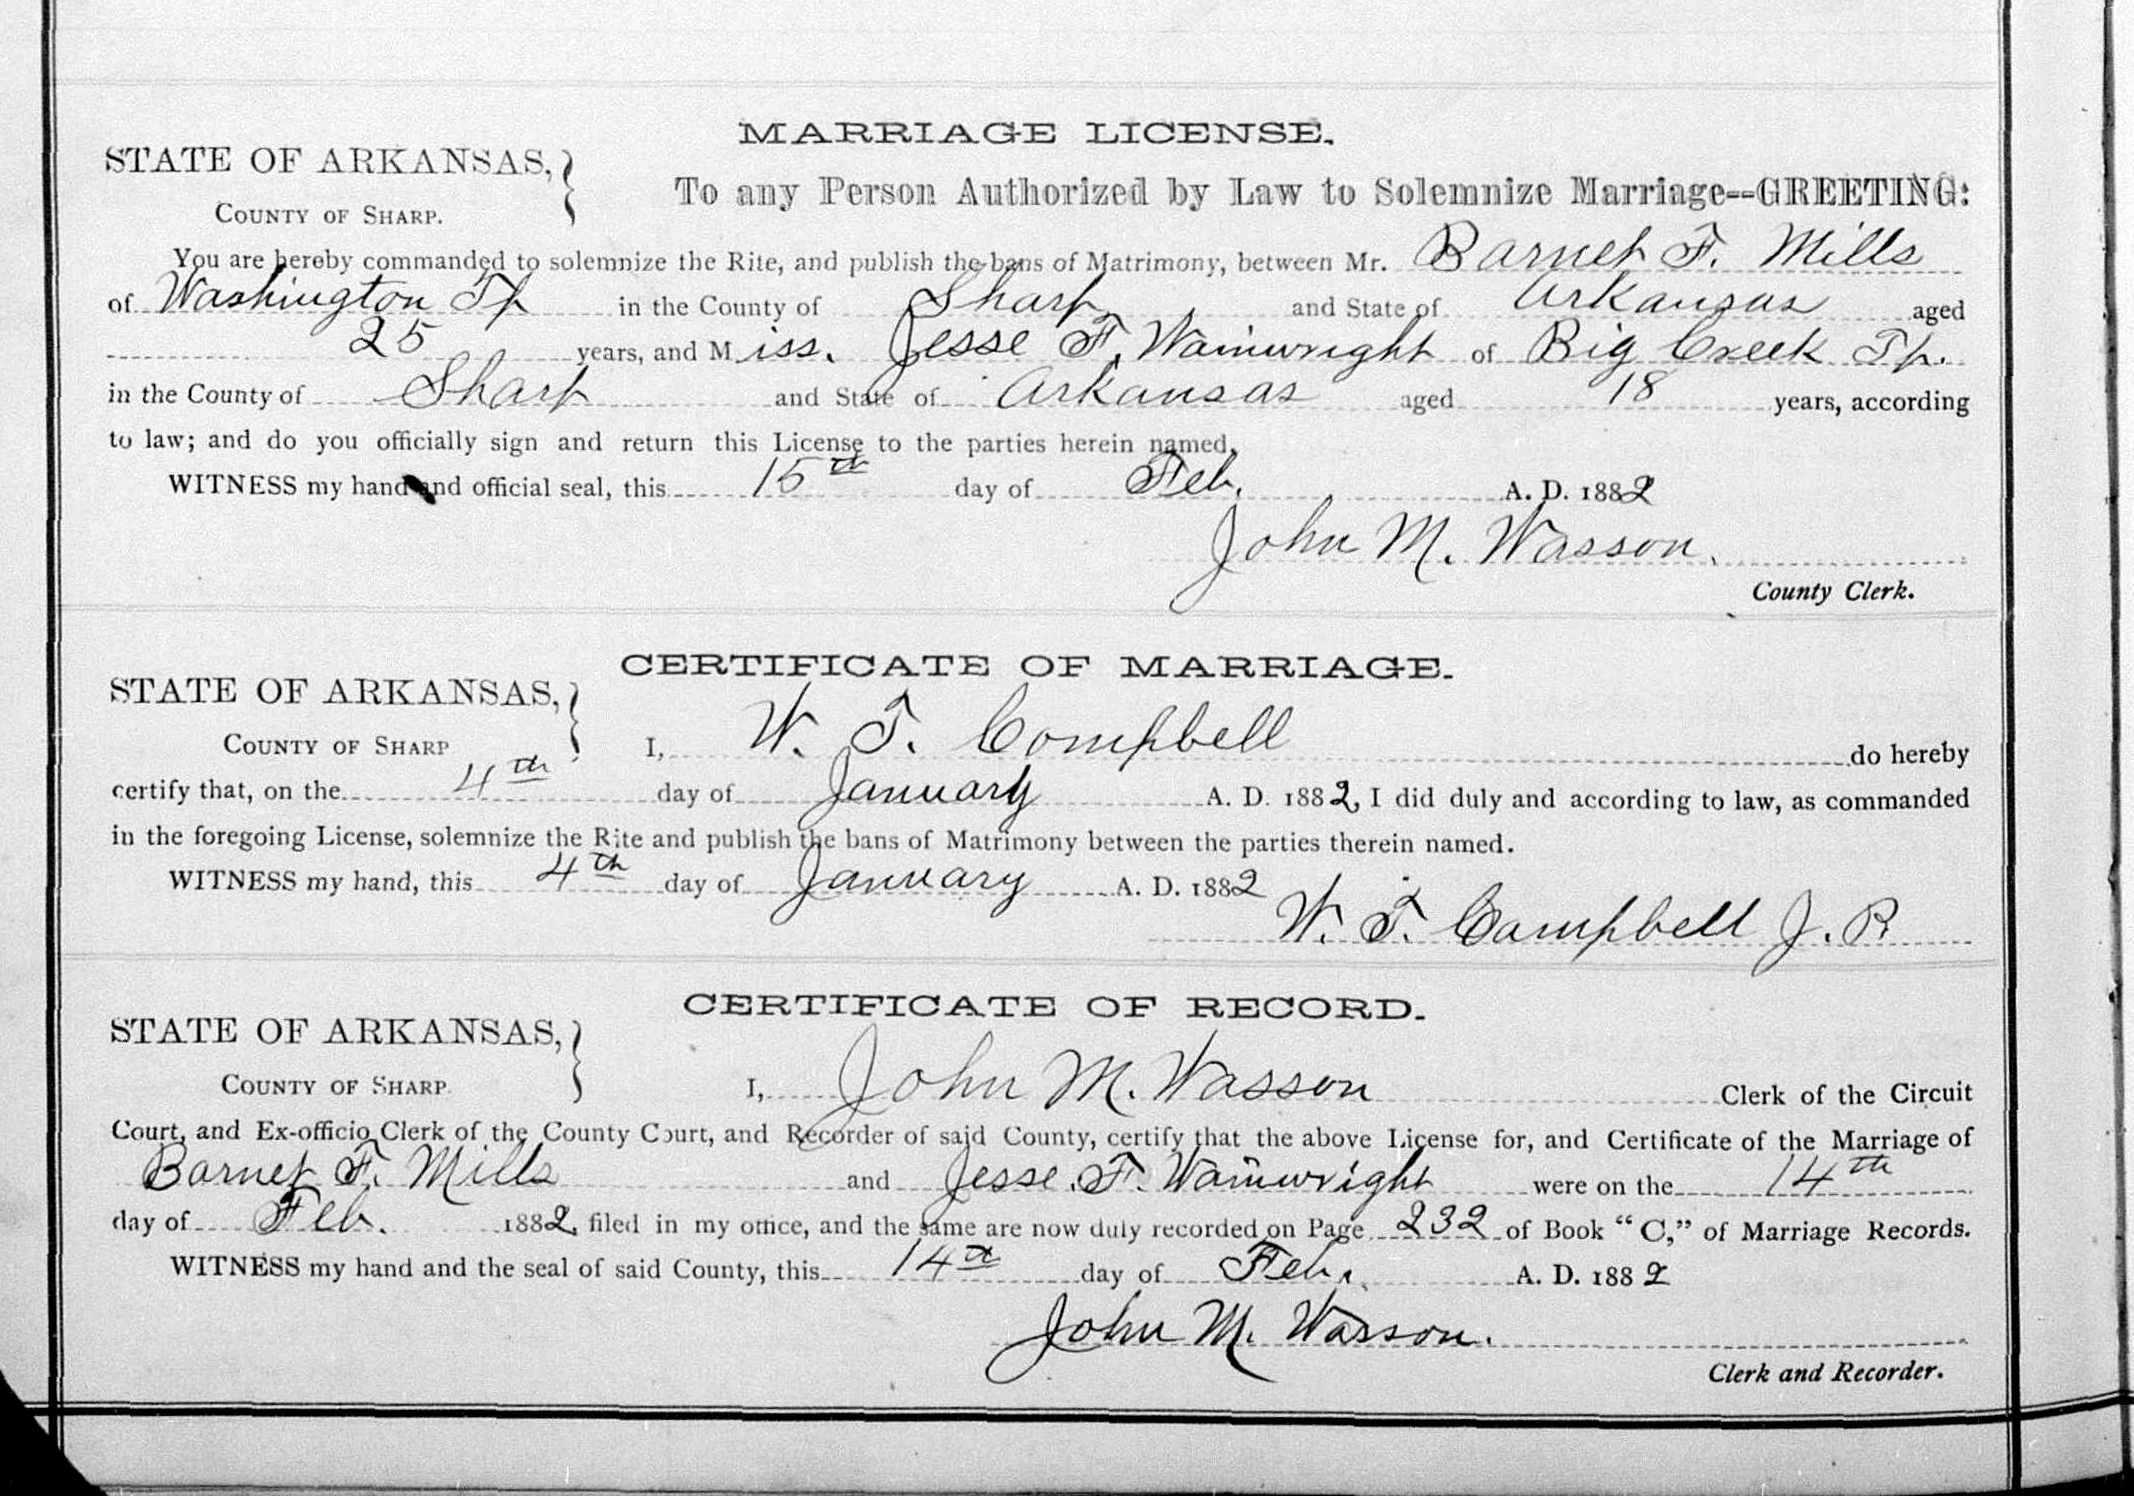 MARRIAGE LICENSE.
STATE OF ARKANSAS,
COUNTY OF SHARP.
To any Person Authorized by Law to Solemnize Marriage--GREETING:
You are hereby commanded to solemnize the Rite, and publish the bans of Matrimony, between Mr. Barnet F. Mills
of Washington Tp in the County of Sharp and State of Arkansas aged
25 years, and Miss. Jesse F. Wainwright of Big Creek Tp.
in the County of Sharp and State of Arkansas aged 18 years, according
to law; and do you officially sign and return this License to the parties herein named.
WITNESS my hand and official seal, this 15th day of Feb. A. D. 1882
John M. Wasson.
County Clerk.
CERTIFICATE OF MARRIAGE.
STATE OF ARKANSAS,
COUNTY OF SHARP
I, W. T. Campbell do hereby
certify that, on the 4th day of January A. D. 1882, I did duly and according to law, as commanded
in the foregoing License, solemnize the Rite and publish the bans of Matrimony between the parties therein named.
WITNESS my hand, this 4th day of January A. D. 1882
W. T. Campbell J. P.
CERTIFICATE OF RECORD.
STATE OF ARKANSAS,
COUNTY OF SHARP.
I, John M. Wasson Clerk of the Circuit
Court, and Ex-officio Clerk of the County Court, and Recorder of said County, certify that the above License for, and Certificate of the Marriage of
Barnet F. Mills and Jesse. F. Wainwright were on the 14th
day of Feb. 1882, filed in my office, and the same are now duly recorded on Page 232 of Book "C," of Marriage Records.
WITNESS my hand and the seal of said County, this 14th day of Feb. A. D. 1882
John M. Wasson.
Clerk and Recorder.